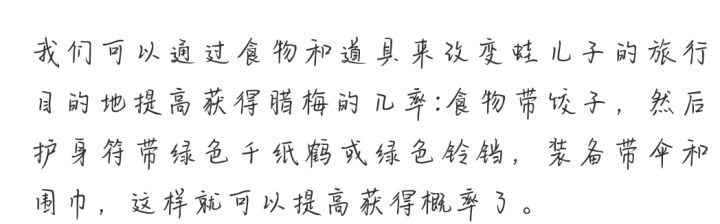 我们可以通过食物和道具来改变蛙儿子的旅行
目的地提高获得腊梅的几率:食物带饺子，然后
护身符带绿色千纸鹤或绿色铃铛，装备带伞和
围巾，这样就可以提高获得概率了。